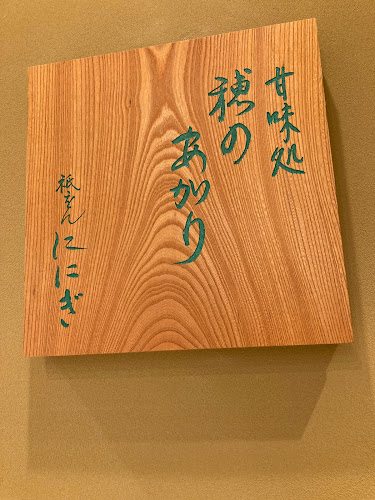 甘味処
穂の
あかり
祇をん
ににぎ